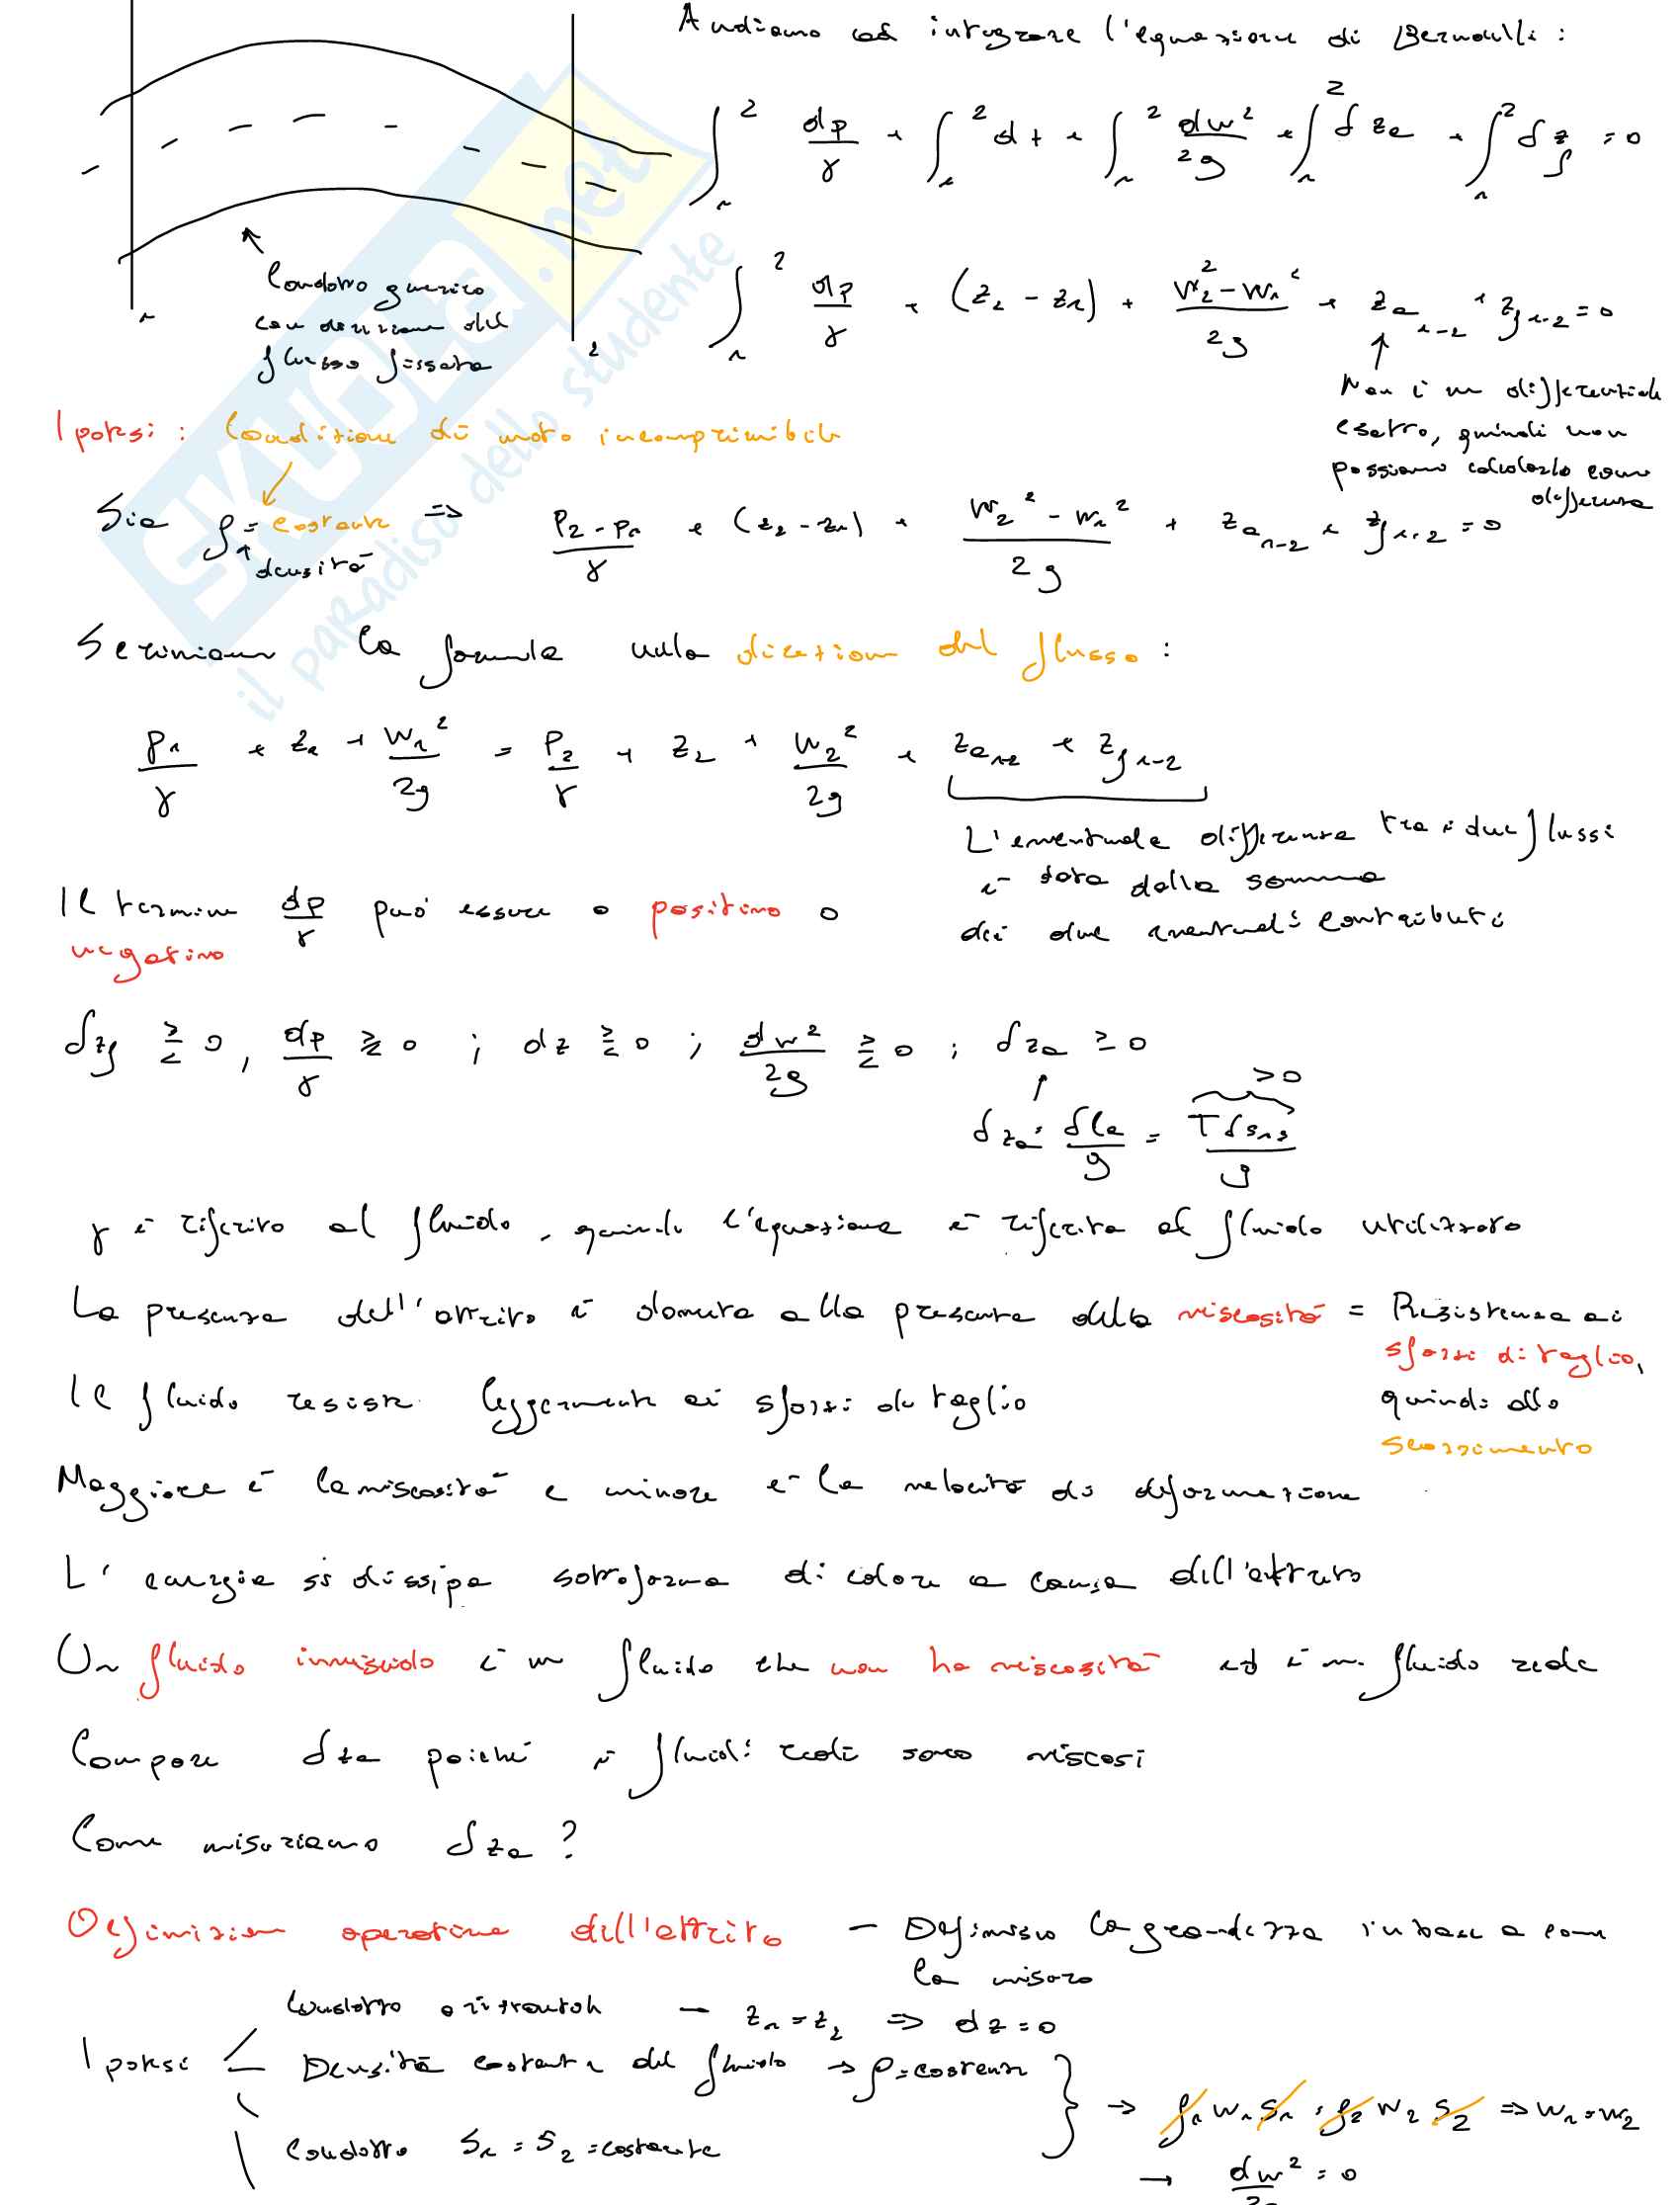 Andiamo ad integrare l'equazione di Bernoulli :
∫₁² dp/γ + ∫₁² dz + ∫₁² dw²/2g + ∫₁² δza + ∫₁² δzf = 0
∫₁² dp/γ + (z₂ - z₁) + (w₂² - w₁²)/2g + za₁₋₂ + zf₁₋₂ = 0
Condotto generico
con direzione del
flusso fissata
1
2
Non è un differenziale
esatto, quindi non
possiamo calcolarlo come
differenza
Ipotesi : Condizione di moto incomprimibile
Sia ρ = costante => (p₂ - p₁)/γ + (z₂ - z₁) + (w₂² - w₁²)/2g + za₁₋₂ + zf₁₋₂ = 0
densità
Scriviamo la formula nella direzione del flusso :
p₁/γ + z₁ + w₁²/2g = p₂/γ + z₂ + w₂²/2g + za₁₋₂ + zf₁₋₂
L'eventuale differenza tra i due flussi
è data dalla somma
dei due eventuali contributi
Il termine dp/γ può essere o positivo o
negativo
δzf ⋛ 0, dp/γ ⋛ 0 ; dz ⋛ 0 ; dw²/2g ⋛ 0 ; δza ≥ 0
>0
δza = δla/g = Tδsirr/g
γ è riferito al fluido, quindi l'equazione è riferita al fluido utilizzato
La presenza dell'attrito è dovuta alla presenza della viscosità = Resistenza ai
sforzi di taglio,
quindi allo
scorrimento
Il fluido resiste leggermente ai sforzi di taglio
Maggiore è la viscosità e minore è la velocità di deformazione
L'energia si dissipa sottoforma di calore a causa dell'attrito
Un fluido inviscido è un fluido che non ha viscosità ed è un fluido reale
Compare δza poiché i fluidi reali sono viscosi
Come misuriamo δza ?
Definizione operativa dell'attrito - Definisco la grandezza in base a come
la misuro
Condotto orizzontale - z₁ = z₂ => dz = 0
Ipotesi
Densità costante del fluido → ρ = costante
→ ρ₁ w₁ S₁ = ρ₂ w₂ S₂ => w₁ = w₂
Condotto S₁ = S₂ = costante
→ dw²/2g = 0
SKUOLA.net
il paradiso dello studente